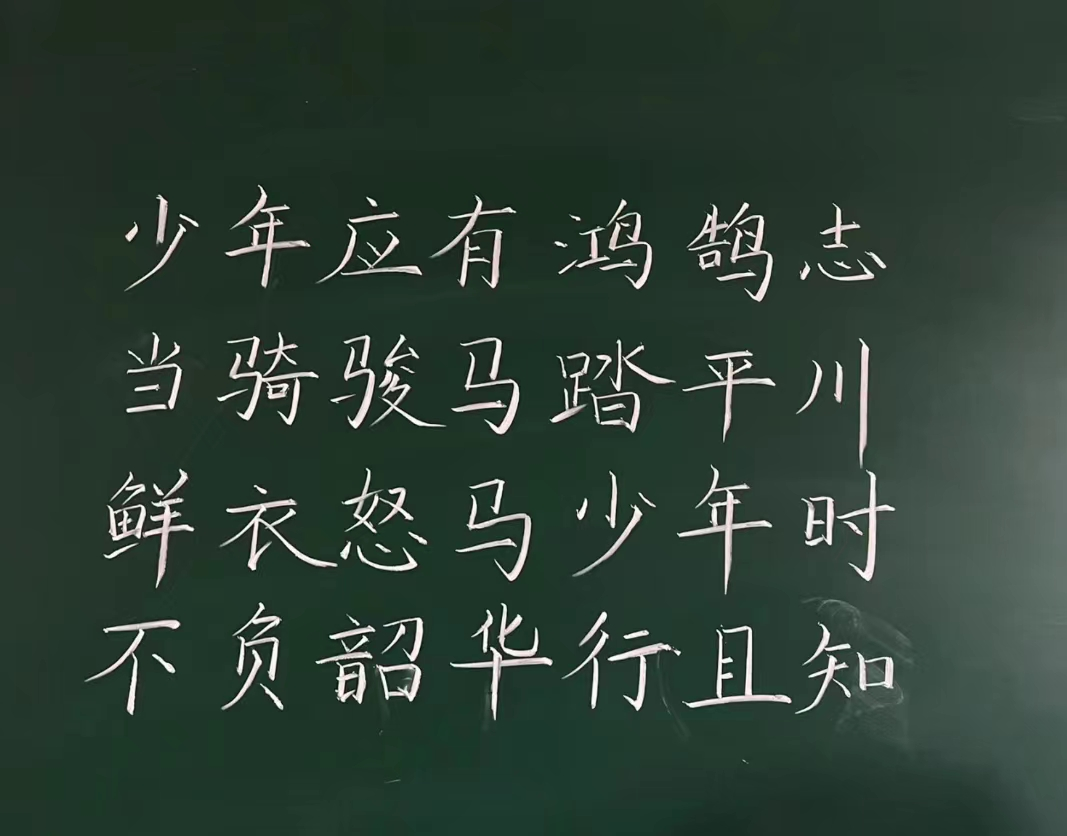 少年应有鸿鹄志
当骑骏马踏平川
鲜衣怒马少年时
不负韶华行且知